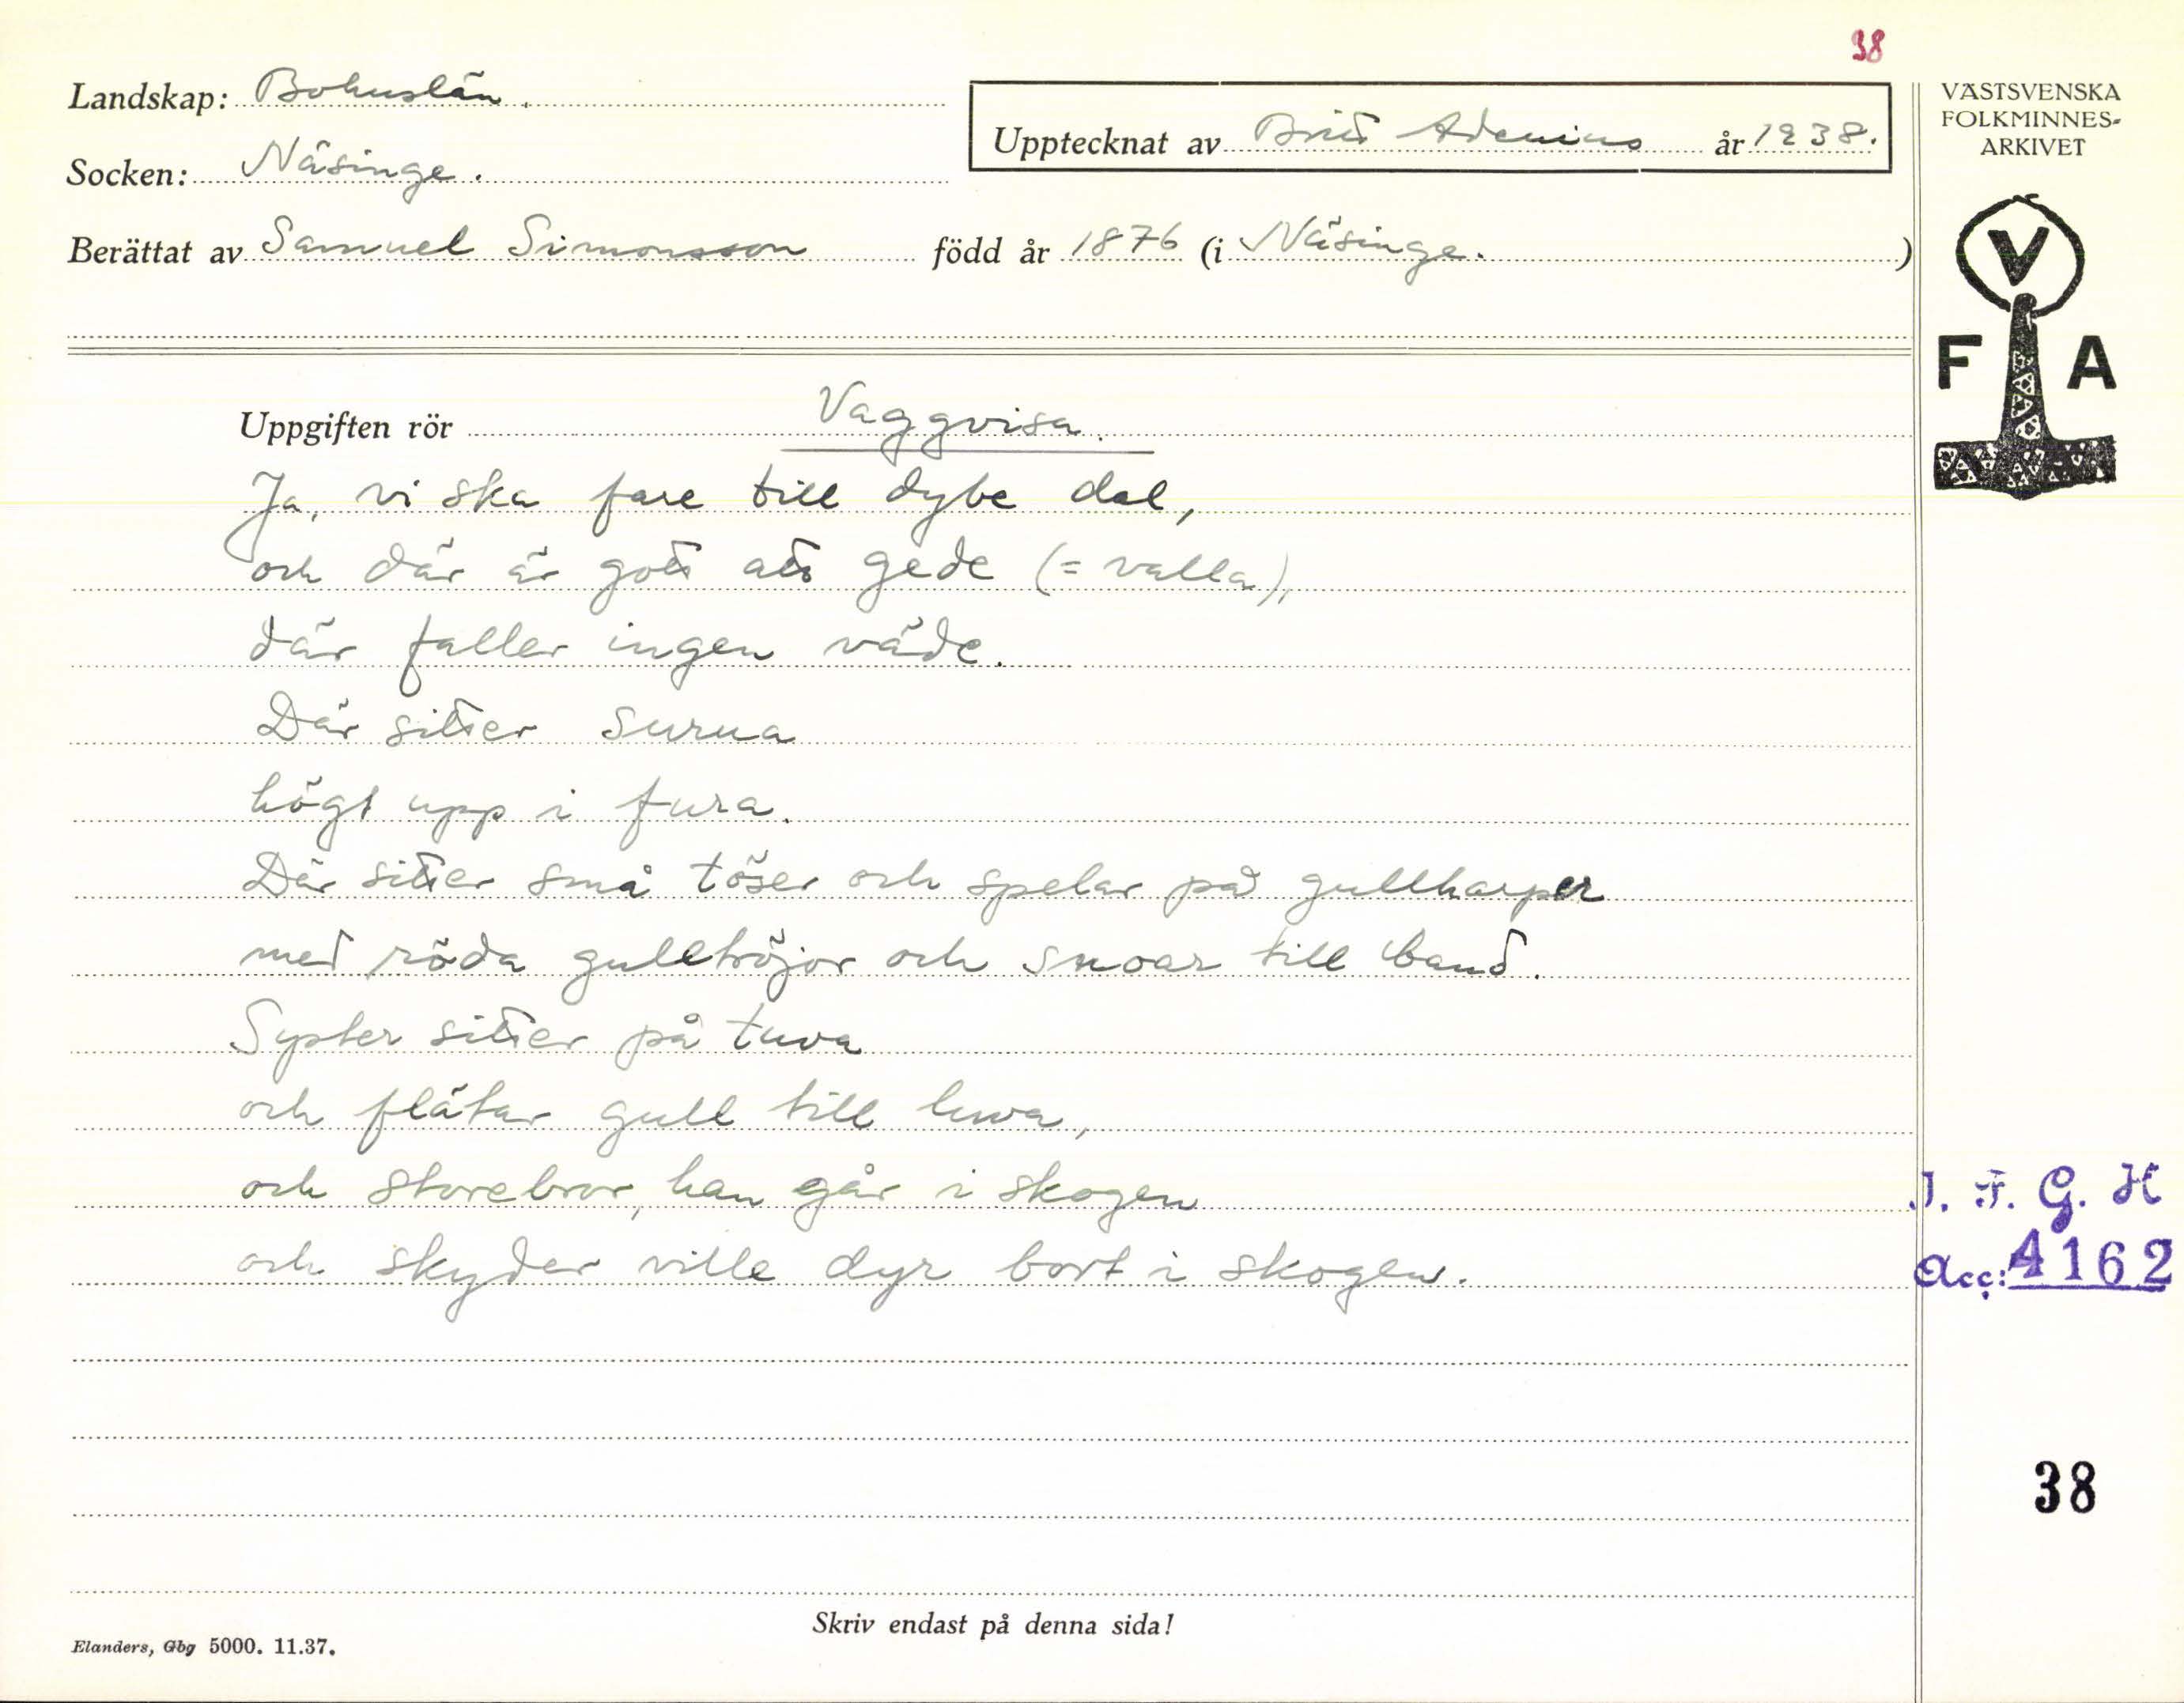 38
Landskap: Bohuslän.
Upptecknat av Britt Adenius år 1938.
Socken: Näsinge.
Berättat av Samuel Simonsson född år 1876 (i Näsinge.)
VÄSTSVENSKA
FOLKMINNES-
ARKIVET
V
F A
Uppgiften rör Vaggvisa.
Ja, vi ska fare till dybe dal,
och där är gott att gede (= valla),
där faller ingen väde.
Där sitter
högt upp i fura.
Där sitter små töser och spelar på gullharper
med röda gulltröjor och snoar till band.
Syster sitter på tuva
och flätar gull till luva,
och storebror, han går i skogen
och skyder ville dyr bort i skogen.
I. F. G. H
Acc: 4162
38
Skriv endast på denna sida!
Elanders, Gbg 5000. 11.37.